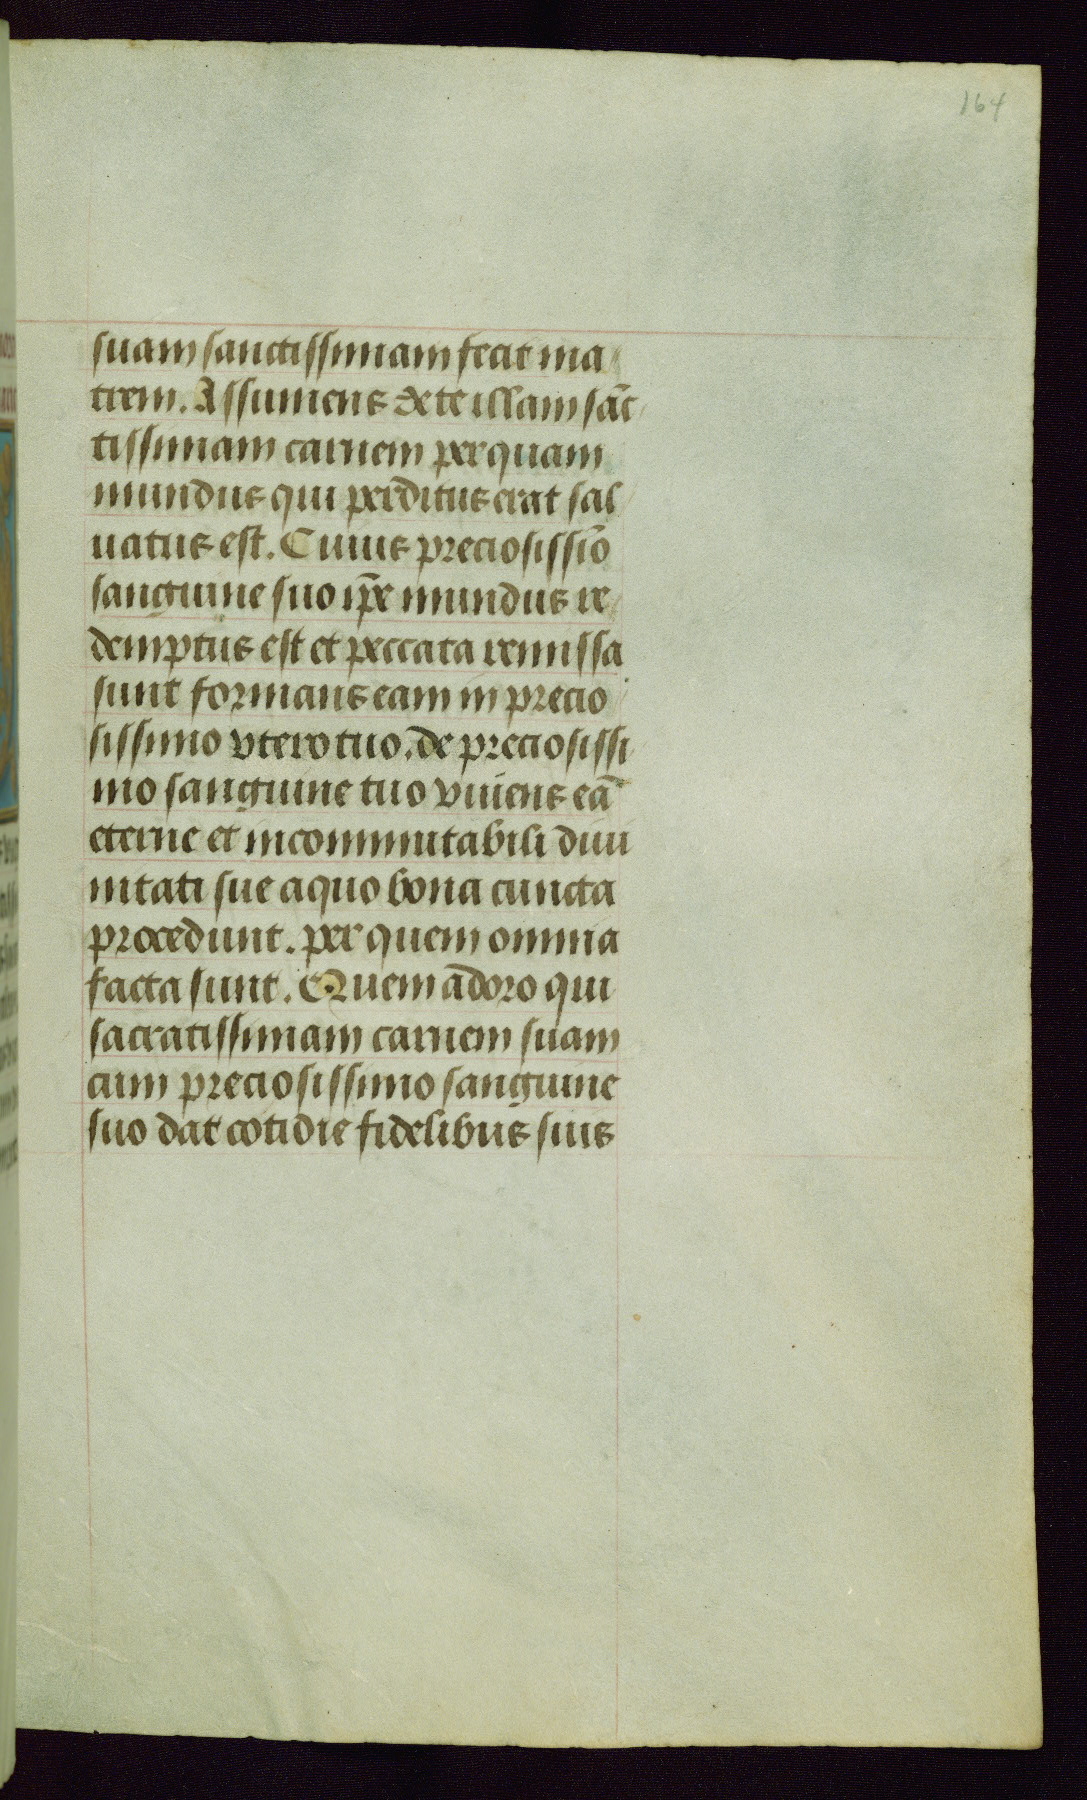 164
suam sanctissimam fecit ma
trem. Assumens de te illam sāc
tissimam carnem per quam
mundus qui perditus erat sal
uatus est. Cuius preciosissīo
sanguine suo ip̄e mundus re
demptus est et peccata remissa
sunt formans eam in precio
sissimo vtero tuo. de preciosissi
mo sanguine tuo viuiens eā
eterne et incommutabili diui
nitati sue a quo bona cuncta
procedunt. per quem omnia
facta sunt. Quem adoro qui
sacratissimam carnem suam
cum preciosissimo sanguine
suo dat cotidie fidelibus suis